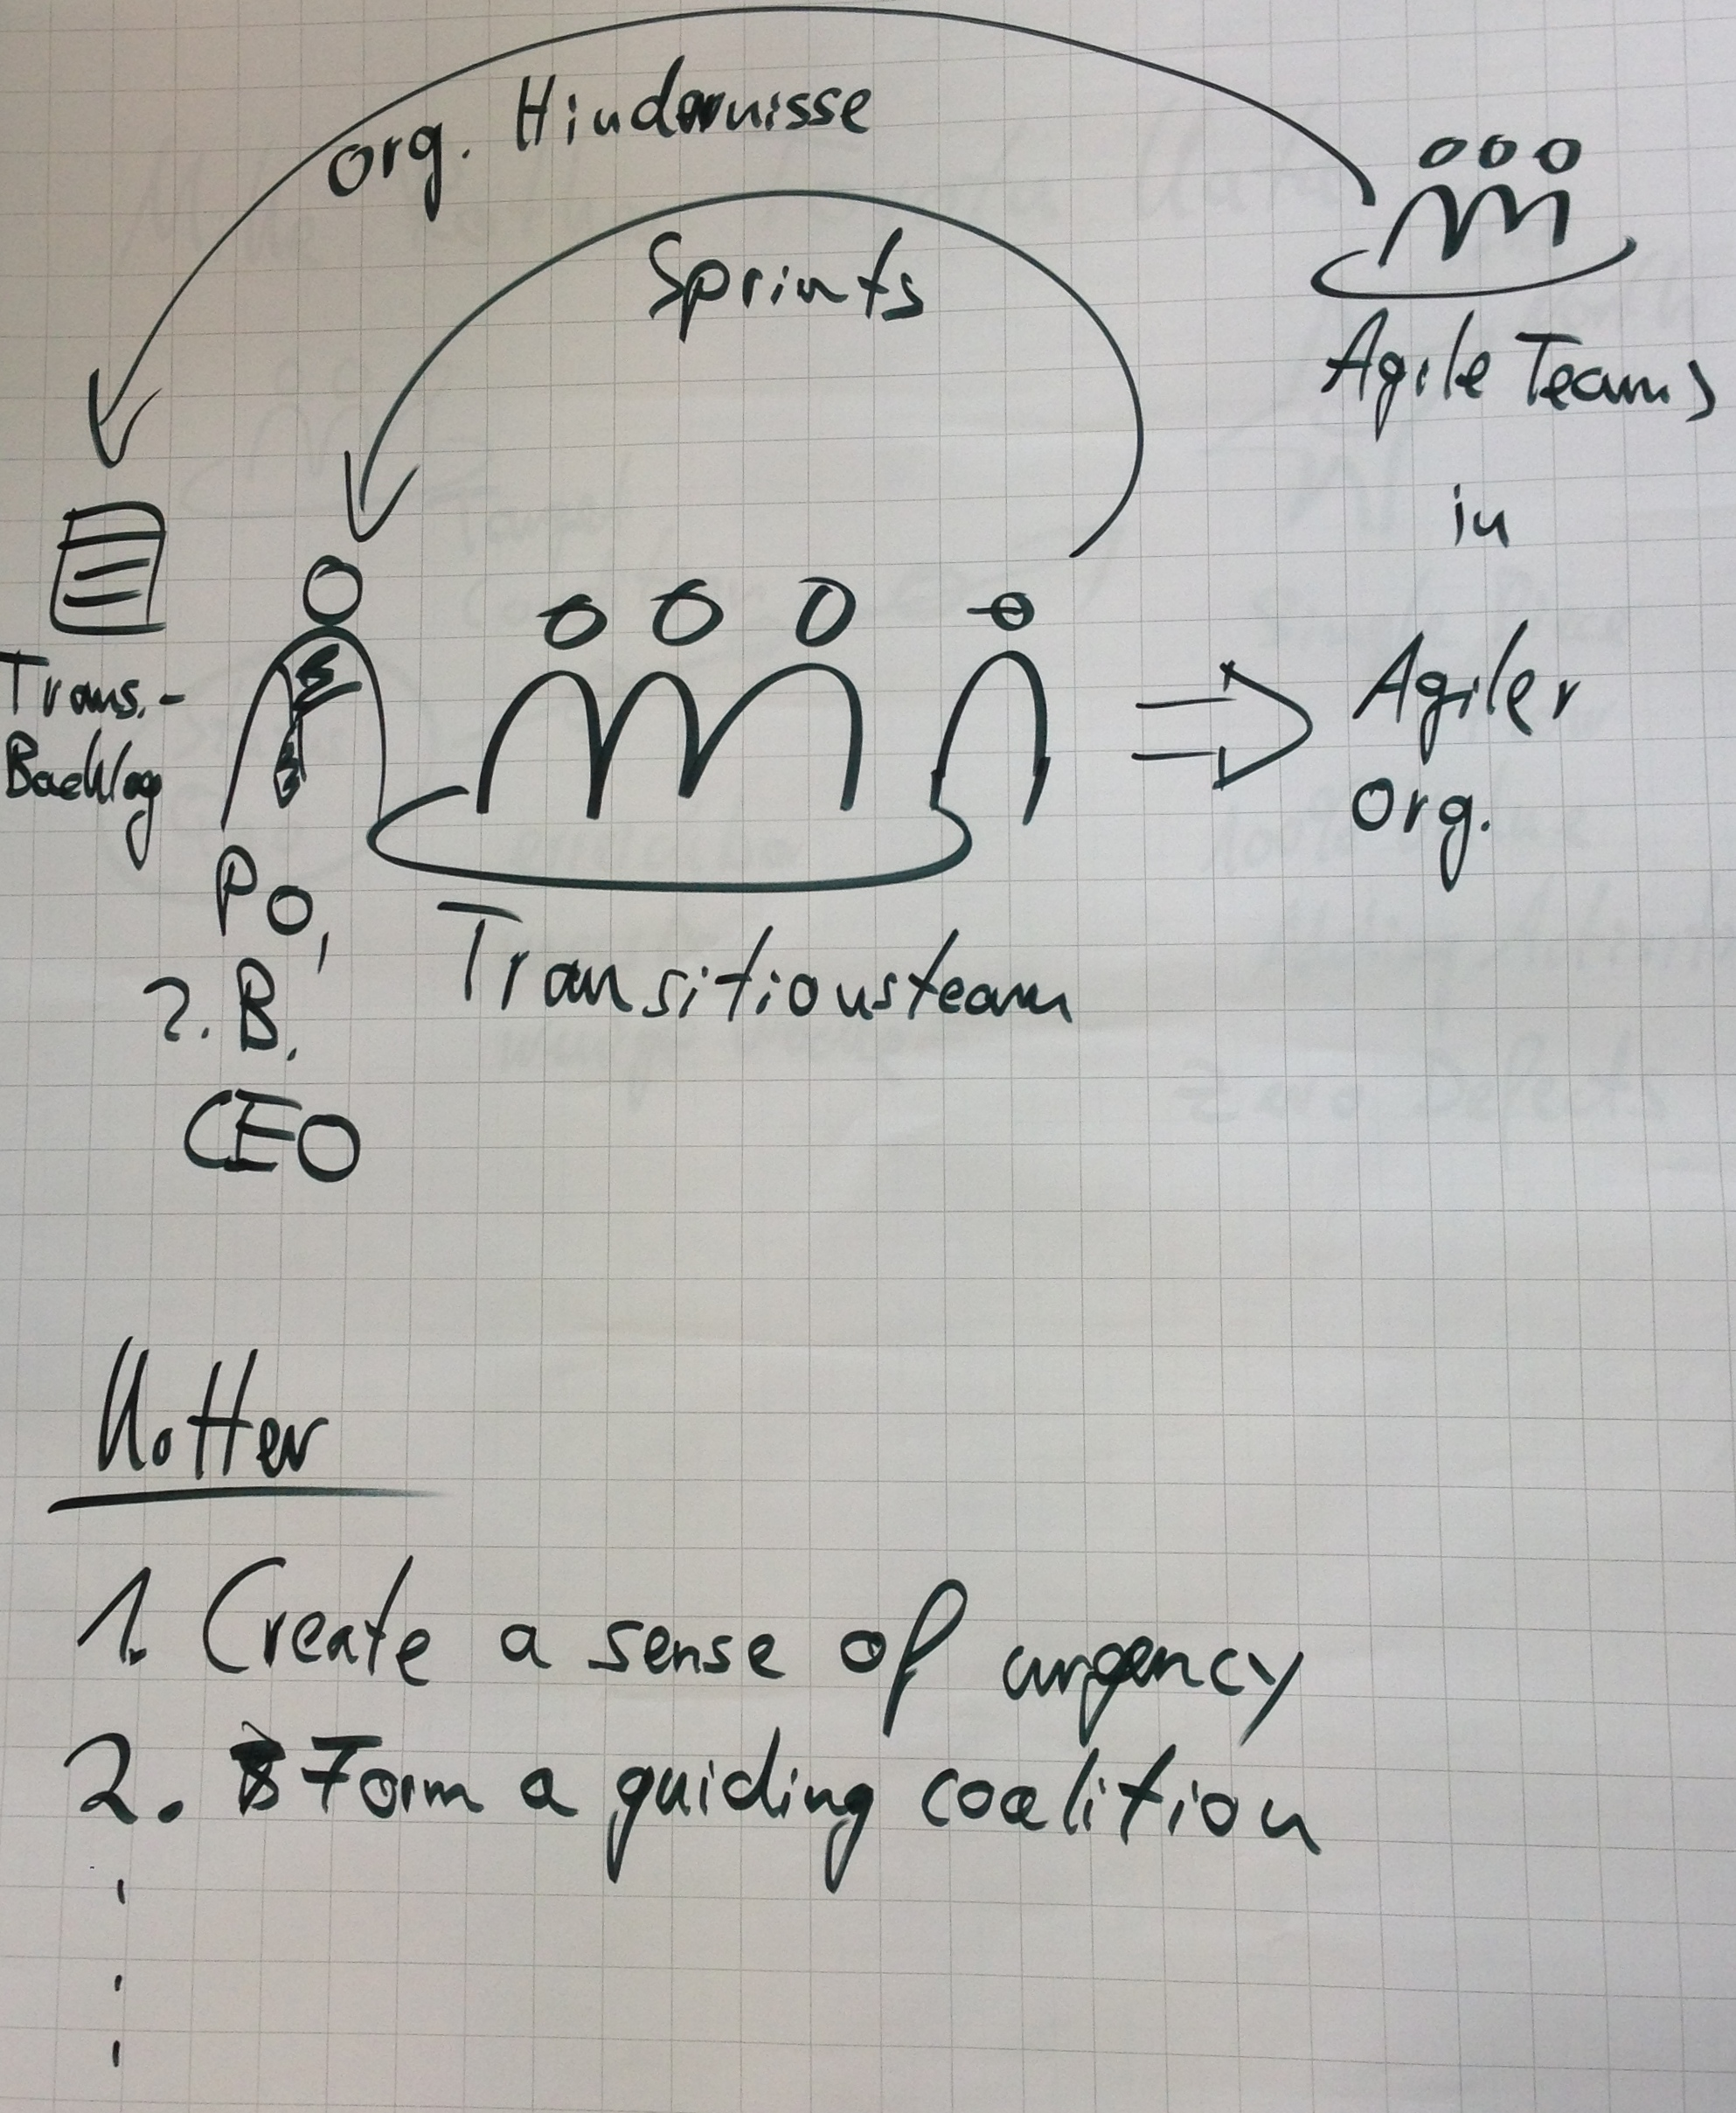 org. Hindernisse
Sprints
Agile Teams
in
Agiler
Org.
Trans.-
Backlog
PO,
z.B.
CEO
Transitionsteam
Kotter
1. Create a sense of urgency
2. Form a guiding coalition